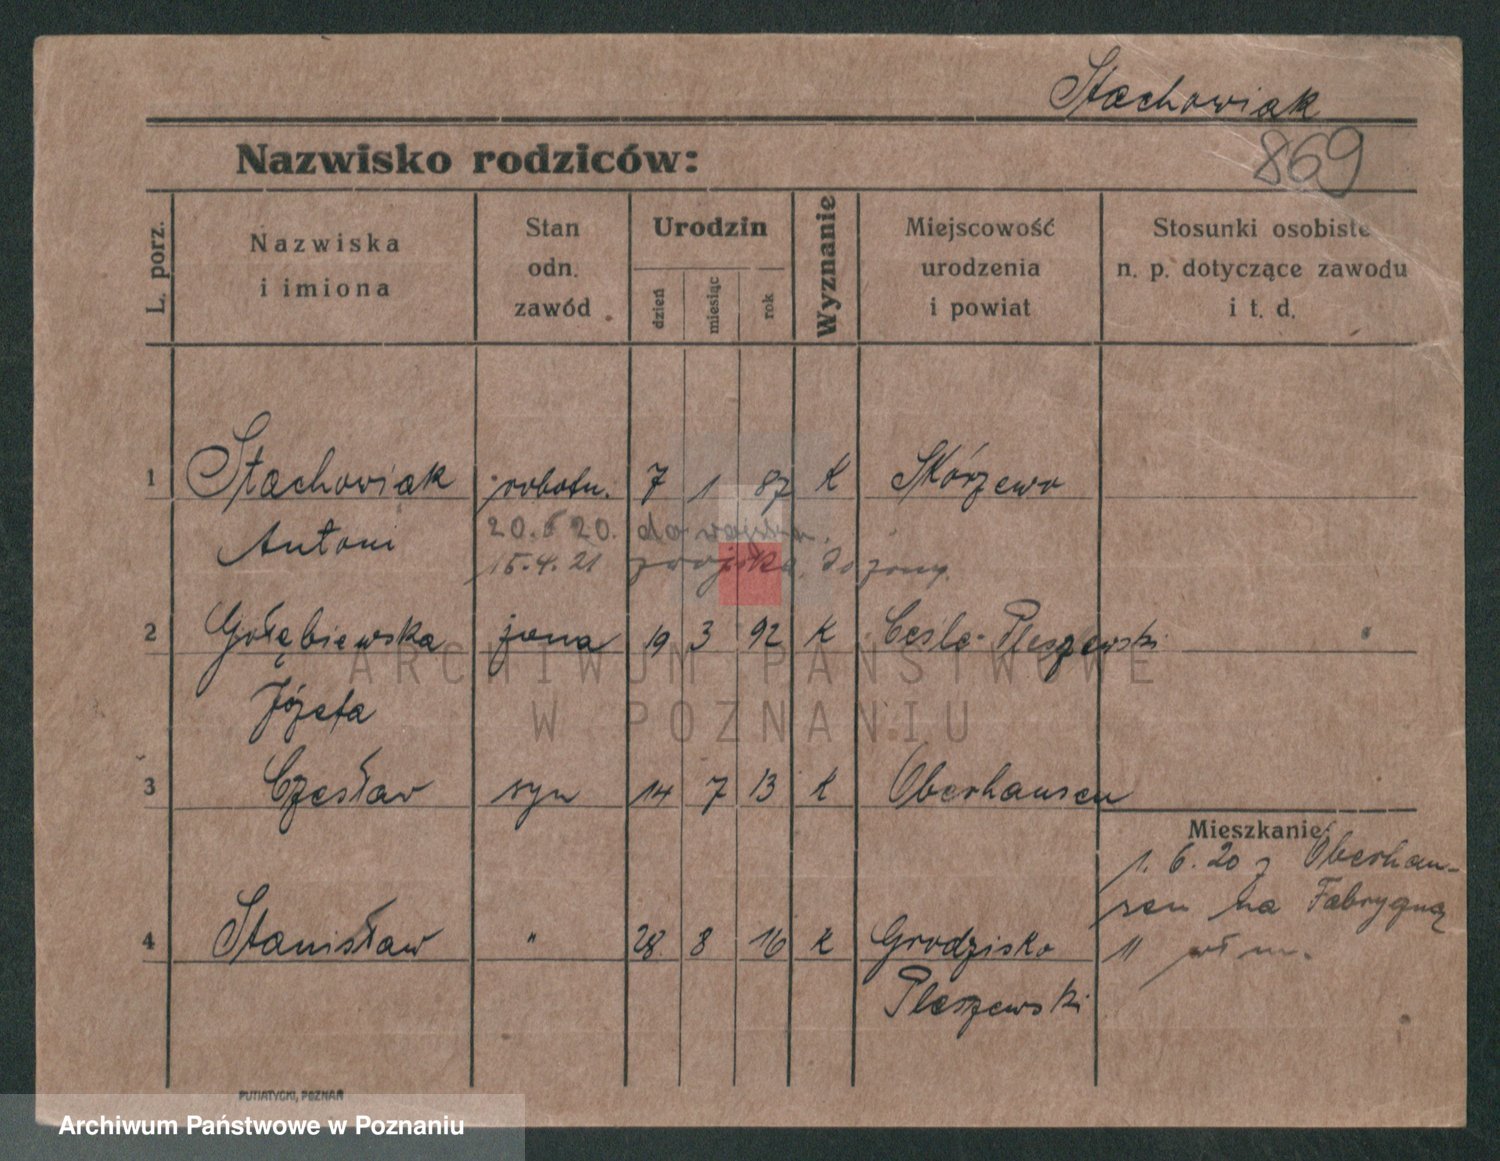 Stachowiak
869
Nazwisko rodziców:
L. porz.
Nazwiska
i imiona
Stan
odn.
zawód
Urodzin
dzień
miesiąc
rok
Wyznanie
Miejscowość
urodzenia
i powiat
Stosunki osobiste
n. p. dotyczące zawodu
i t. d.
1 Stachowiak robotn. 7 1 87 K Skórzewo
Antoni
20.6 20. do wojska.
15.4.21 z wojska do żony.
2 Gołębiewska żona 19 3 92 K Cieśle-Pleszewski
Józefa
3 Czesław syn 14 7 13 K Oberhausen
Mieszkanie:
1.6.20 z Oberhau-
sen na Fabryczną
11
4 Stanisław " 28. 8 16 K Grodzisko
Pleszewski
ARCHIWUM PAŃSTWOWE
W POZNANIU
PUTIATYCKI, POZNAŃ
Archiwum Państwowe w Poznaniu